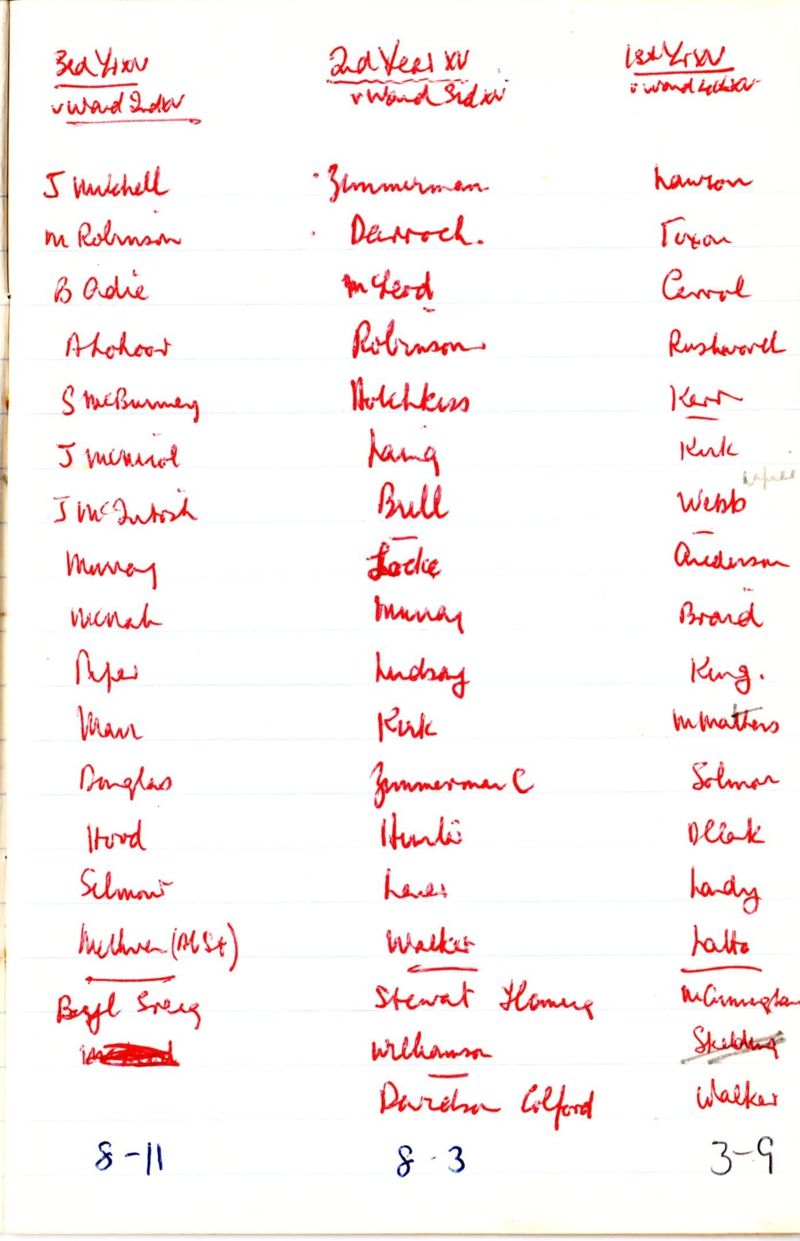 3rd Yr XV
v Ward 2nd XV
J Mitchell
M Robinson
B Adie
A Lohoar
S McBurney
J McNicol
J McIntosh
Murray
McNab
Piper
Marr
Douglas
Hood
Selmour
Methven (Ab St)
Beryl
8-11
2nd Year XV
v Ward 3rd XV
Zimmerman
Darroch.
McLeod
Robinson
Hotchkiss
Laing
Bull
Locke
Murray
Lindsay
Kirk
Zimmerman C
Walker
Stewart Fleming
Williamson
Davidson Colford
8-3
1st Yr XV
v Ward 4th XV
Lawson
Carrol
Rushworth
Kerr
Kirk
Webb
Anderson
Braid
King.
M Mathers
D Clark
Landy
Latto
Skelding
Walker
3-9